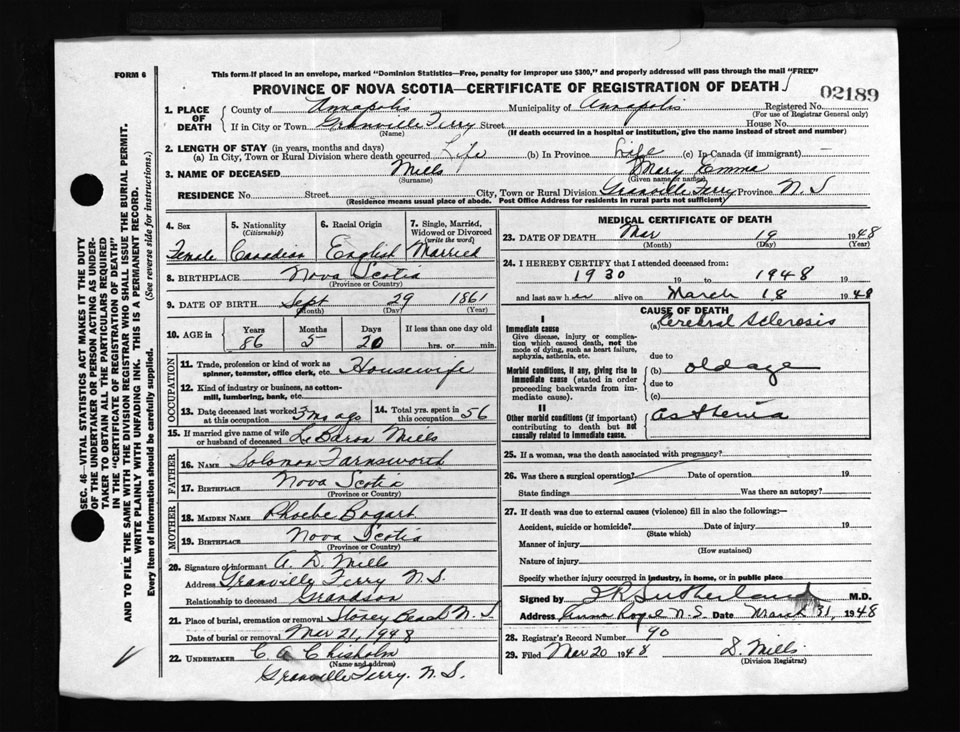 FORM 6
This form if placed in an envelope, marked "Dominion Statistics—Free, penalty for improper use $300," and properly addressed will pass through the mail "FREE"
PROVINCE OF NOVA SCOTIA—CERTIFICATE OF REGISTRATION OF DEATH
02189
1. PLACE OF DEATH County of Annapolis Municipality of Annapolis Registered No.
(For use of Registrar General only)
If in City or Town Granville Ferry Street House No.
(Name) (If death occurred in a hospital or institution, give the name instead of street and number)
2. LENGTH OF STAY (in years, months and days)
(a) In City, Town or Rural Division where death occurred Life (b) In Province Life (c) In Canada (if immigrant) —
3. NAME OF DECEASED Mills Mary Emma
(Surname) (Given name or names)
RESIDENCE No. Street City, Town or Rural Division Granville Ferry Province N. S
(Residence means usual place of abode. Post Office Address for residents in rural parts not sufficient)
4. Sex 5. Nationality (Citizenship) 6. Racial Origin 7. Single, Married, Widowed or Divorced (write the word)
Female Canadian English Married
8. BIRTHPLACE Nova Scotia
(Province or Country)
9. DATE OF BIRTH Sept 29 1861
(Month) (Day) (Year)
10. AGE in Years Months Days If less than one day old
86 5 20 hrs. or min.
OCCUPATION
11. Trade, profession or kind of work as spinner, teamster, office clerk, etc. Housewife
12. Kind of industry or business, as cotton-mill, lumbering, bank, etc.
13. Date deceased last worked at this occupation 3 mo ago 14. Total yrs. spent in this occupation 56
15. If married give name of wife or husband of deceased LeBaron Mills
FATHER
16. NAME Solomon Farnsworth
17. BIRTHPLACE Nova Scotia
(Province or Country)
MOTHER
18. MAIDEN NAME Phoebe Bogart
19. BIRTHPLACE Nova Scotia
(Province or Country)
20. Signature of informant A. D. Mills
Address Granville Ferry N. S.
Relationship to deceased Grandson
21. Place of burial, cremation or removal Stoney Beach N. S
Date of burial or removal Mar 21, 1948
22. UNDERTAKER C. A. Chisholm
(Name and address)
Granville Ferry. N. S.
MEDICAL CERTIFICATE OF DEATH
23. DATE OF DEATH Mar 19 1948
(Month) (Day) (Year)
24. I HEREBY CERTIFY that I attended deceased from:
1930 19 to 1948 19
and last saw her alive on March 18 1948
CAUSE OF DEATH
I
Immediate cause (a) Cerebral Sclerosis
Give disease, injury or complication which caused death, not the mode of dying, such as heart failure, asphyxia, asthenia, etc.
due to
Morbid conditions, if any, giving rise to immediate cause (stated in order proceeding backwards from immediate cause).
(b) old age
due to
(c)
II
Other morbid conditions (if important) contributing to death but not causally related to immediate cause. Asthenia
25. If a woman, was the death associated with pregnancy?
26. Was there a surgical operation? Date of operation 19
State findings Was there an autopsy?
27. If death was due to external causes (violence) fill in also the following:—
Accident, suicide or homicide? Date of injury 19
(State which)
Manner of injury
(How sustained)
Nature of injury
Specify whether injury occurred in industry, in home, or in public place
Signed by Sutherland M.D.
Address Anna Royal N. S. Date March 31, 1948
28. Registrar's Record Number 90
29. Filed Mar 20 1948 D. Mills
(Division Registrar)
SEC. 46—VITAL STATISTICS ACT MAKES IT THE DUTY
OF THE UNDERTAKER OR PERSON ACTING AS UNDER-
TAKER TO OBTAIN ALL THE PARTICULARS REQUIRED
IN THE "CERTIFICATE OF REGISTRATION OF DEATH"
AND TO FILE THE SAME WITH THE DIVISION REGISTRAR WHO SHALL ISSUE THE BURIAL PERMIT.
WRITE PLAINLY WITH UNFADING INK. THIS IS A PERMANENT RECORD.
Every item of information should be carefully supplied. (See reverse side for instructions.)